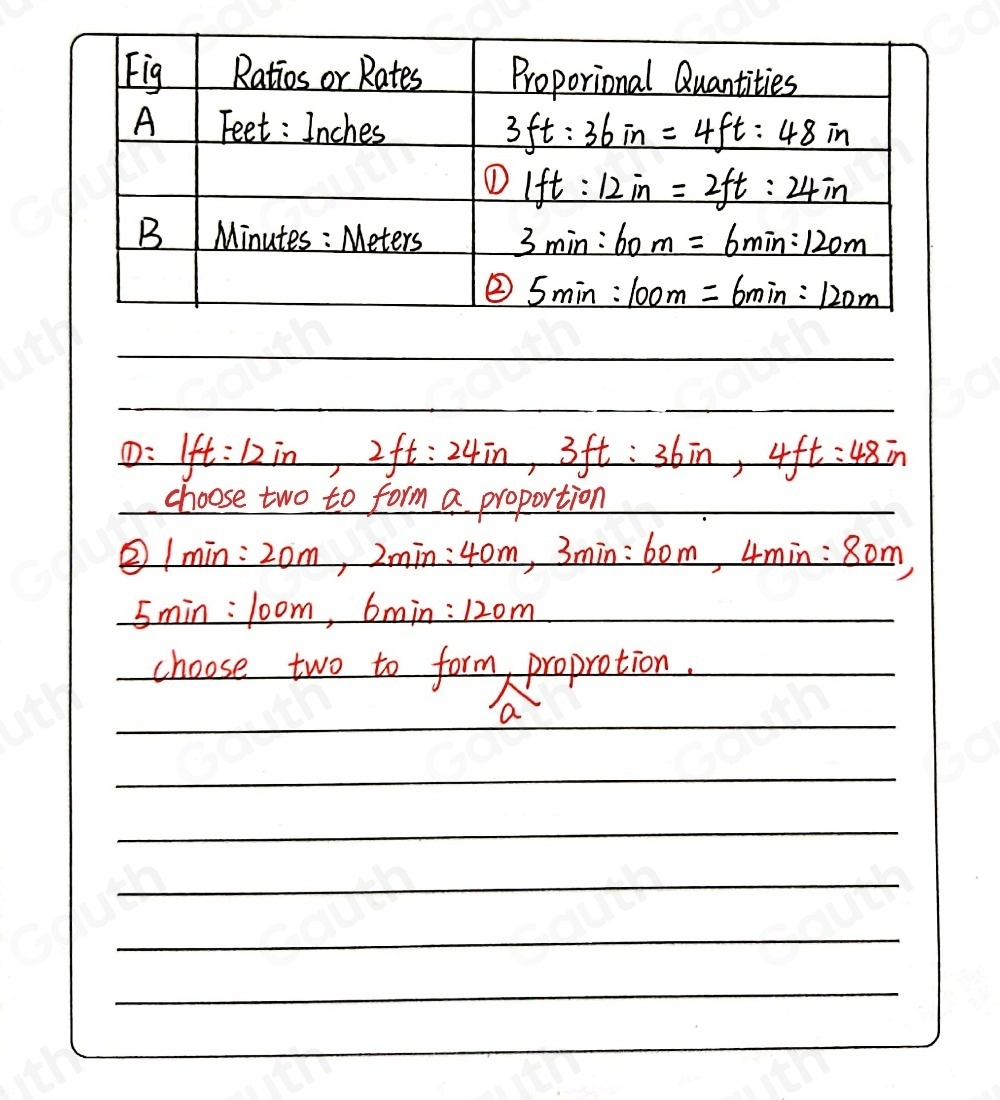 Fig Ratios or Rates Proporional Quantities
A Feet : Inches 3ft : 36 in = 4ft : 48 in
① 1ft : 12 in = 2ft : 24in
B Minutes : Meters 3 min : 60 m = 6min : 120m
② 5min : 100m = 6min : 120m
①: 1ft : 12 in , 2ft : 24in , 3ft : 36in , 4ft : 48in
choose two to form a proportion
② 1 min : 20m , 2min : 40m , 3min : 60m , 4min : 80m ,
5min : 100m , 6min : 120m
choose two to form a proprotion .
Gauth